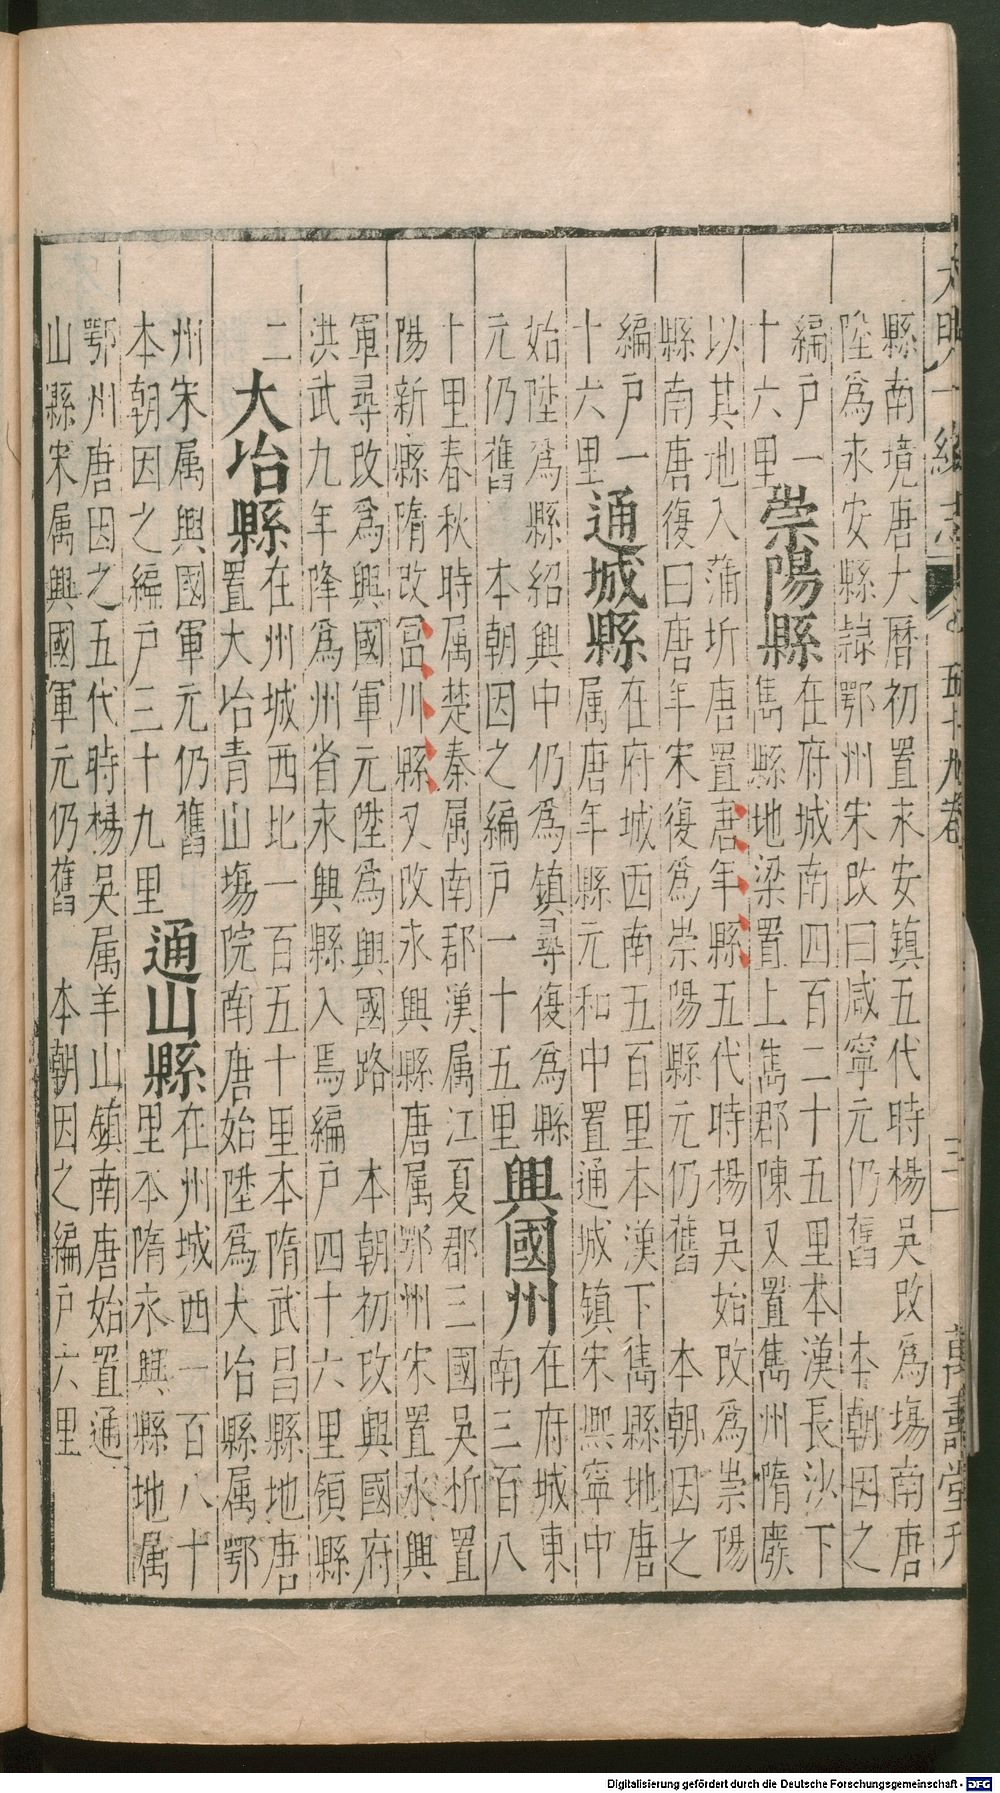 大明一統志 五十九卷 三 萬壽堂刊
縣南境唐大曆初置永安鎮五代時楊吳改爲塲南唐
陞爲永安縣隸鄂州宋改曰咸寧元仍舊 本朝因之
編户一
十六里
崇陽縣
在府城南四百二十五里本漢長沙下
雋縣地梁置上雋郡陳又置雋州隋廢
以其地入蒲圻唐置唐年縣五代時楊吳始改爲崇陽
縣南唐復曰唐年宋復爲崇陽縣元仍舊 本朝因之
編户一
十六里
通城縣
在府城西南五百里本漢下雋縣地唐
属唐年縣元和中置通城鎮宋熙寧中
始陞爲縣紹興中仍爲鎮尋復爲縣
元仍舊 本朝因之編户一十五里
興國州
在府城東
南三百八
十里春秋時属楚秦属南郡漢属江夏郡三國吳析置
陽新縣隋改冨川縣又改永興縣唐属鄂州宋置永興
軍尋改爲興國軍元陞爲興國路 本朝初改興國府
洪武九年降爲州省永興縣入焉編户四十六里領縣
二
大冶縣
在州城西北一百五十里本隋武昌縣地唐
置大冶青山塲院南唐始陞爲大冶縣属鄂
州宋属興國軍元仍舊
本朝因之編户三十九里
通山縣
在州城西一百八十
里本隋永興縣地属
鄂州唐因之五代時楊吳属羊山鎮南唐始置通
山縣宋属興國軍元仍舊 本朝因之編户六里
Digitalisierung gefördert durch die Deutsche Forschungsgemeinschaft - DFG